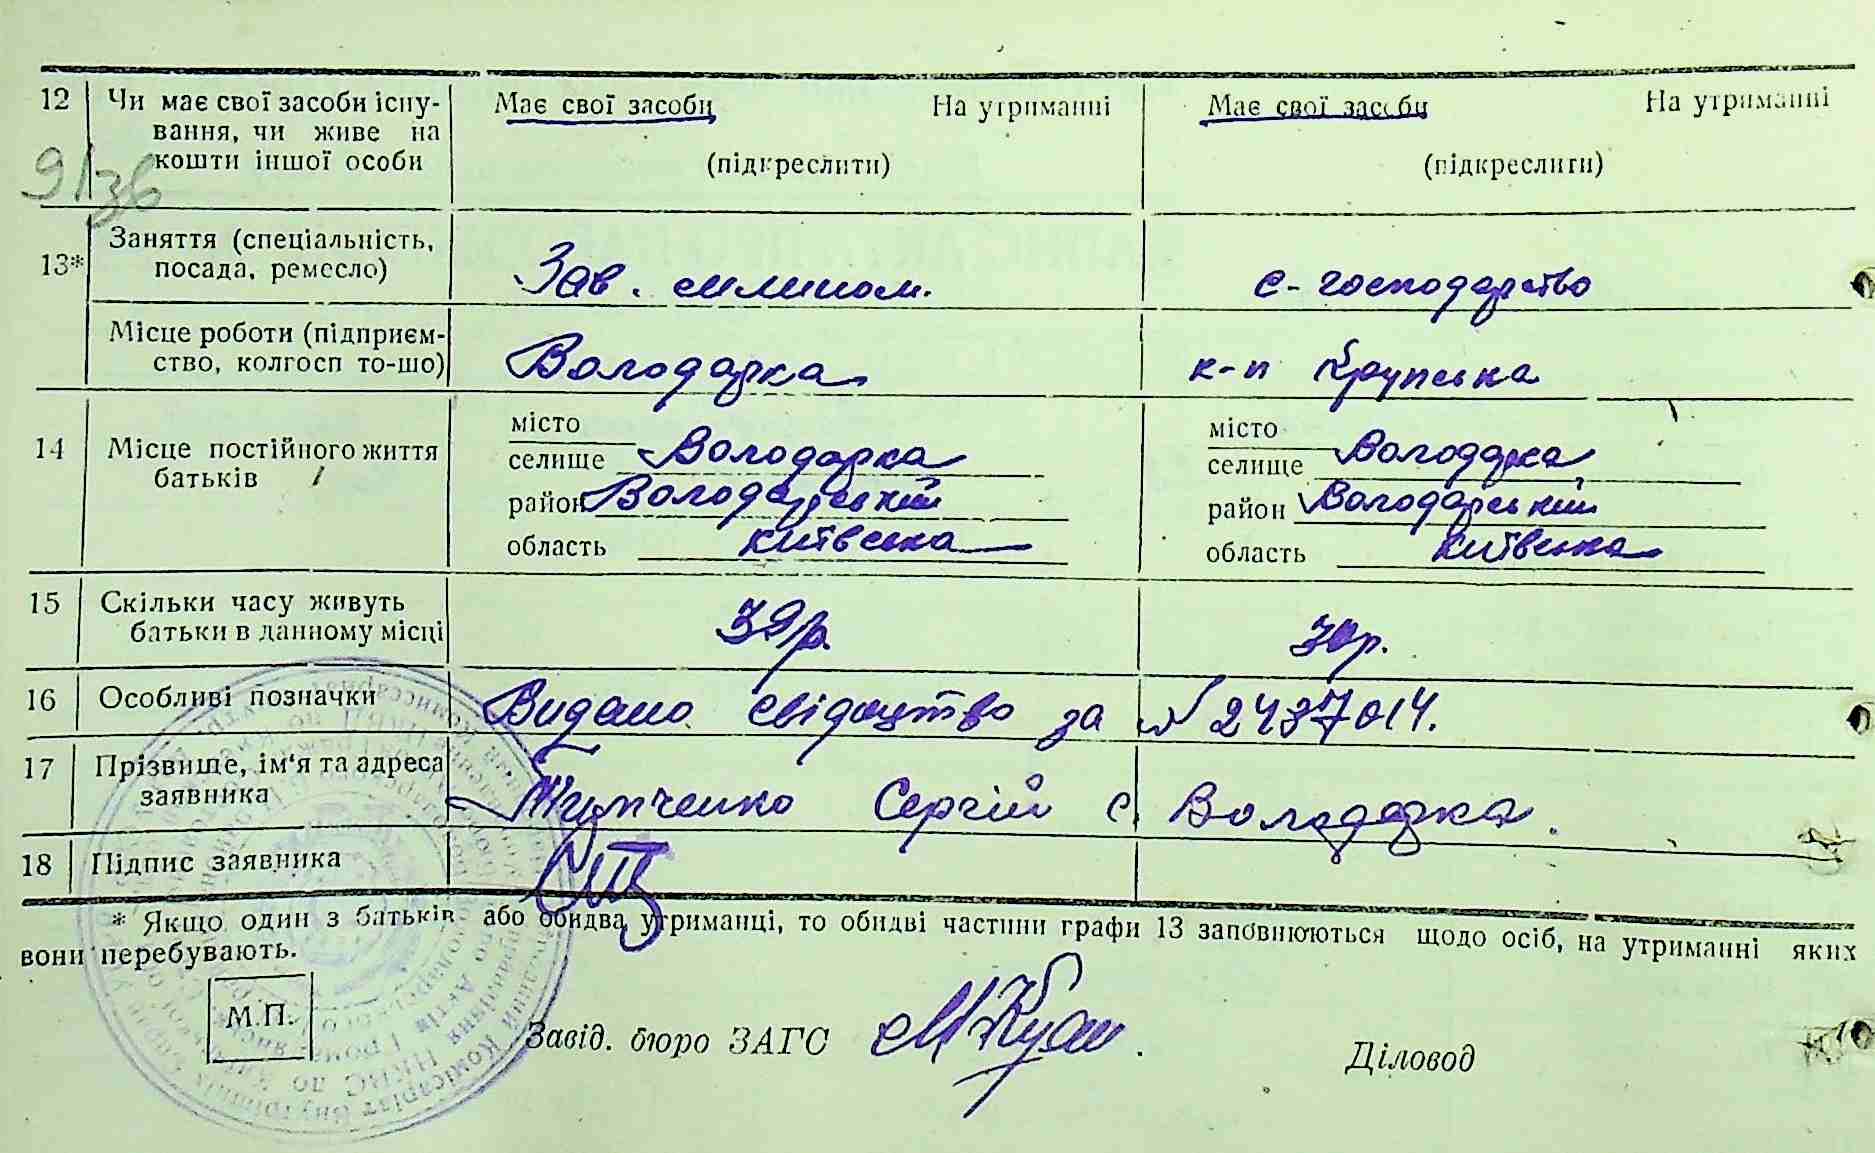 12 Чи має свої засоби існу- Має свої засоби На утриманні Має свої засоби На утриманні
вання, чи живе на
кошти іншої особи (підкреслити) (підкреслити)
9/36
Заняття (спеціальність,
13* посада, ремесло) Зав. млином. с-господарство
Місце роботи (підприєм-
ство, колгосп то-що) Володарка к-п Крупська
місто місто
14 Місце постійного життя селище Володарка селище Володарка
батьків район Володарський район Володарський
область Київська область Київська
15 Скільки часу живуть
батьки в данному місці 39р. 30р.
16 Особливі позначки Видано свідоцтво за № 2437014.
17 Прізвище, ім'я та адреса
заявника Тимченко Сергій с. Володарка.
18 Підпис заявника
* Якщо один з батьків або обидва утриманці, то обидві частини графи 13 заповнюються щодо осіб, на утриманні яких
вони перебувають.
М.П.
Завід. бюро ЗАГС Діловод